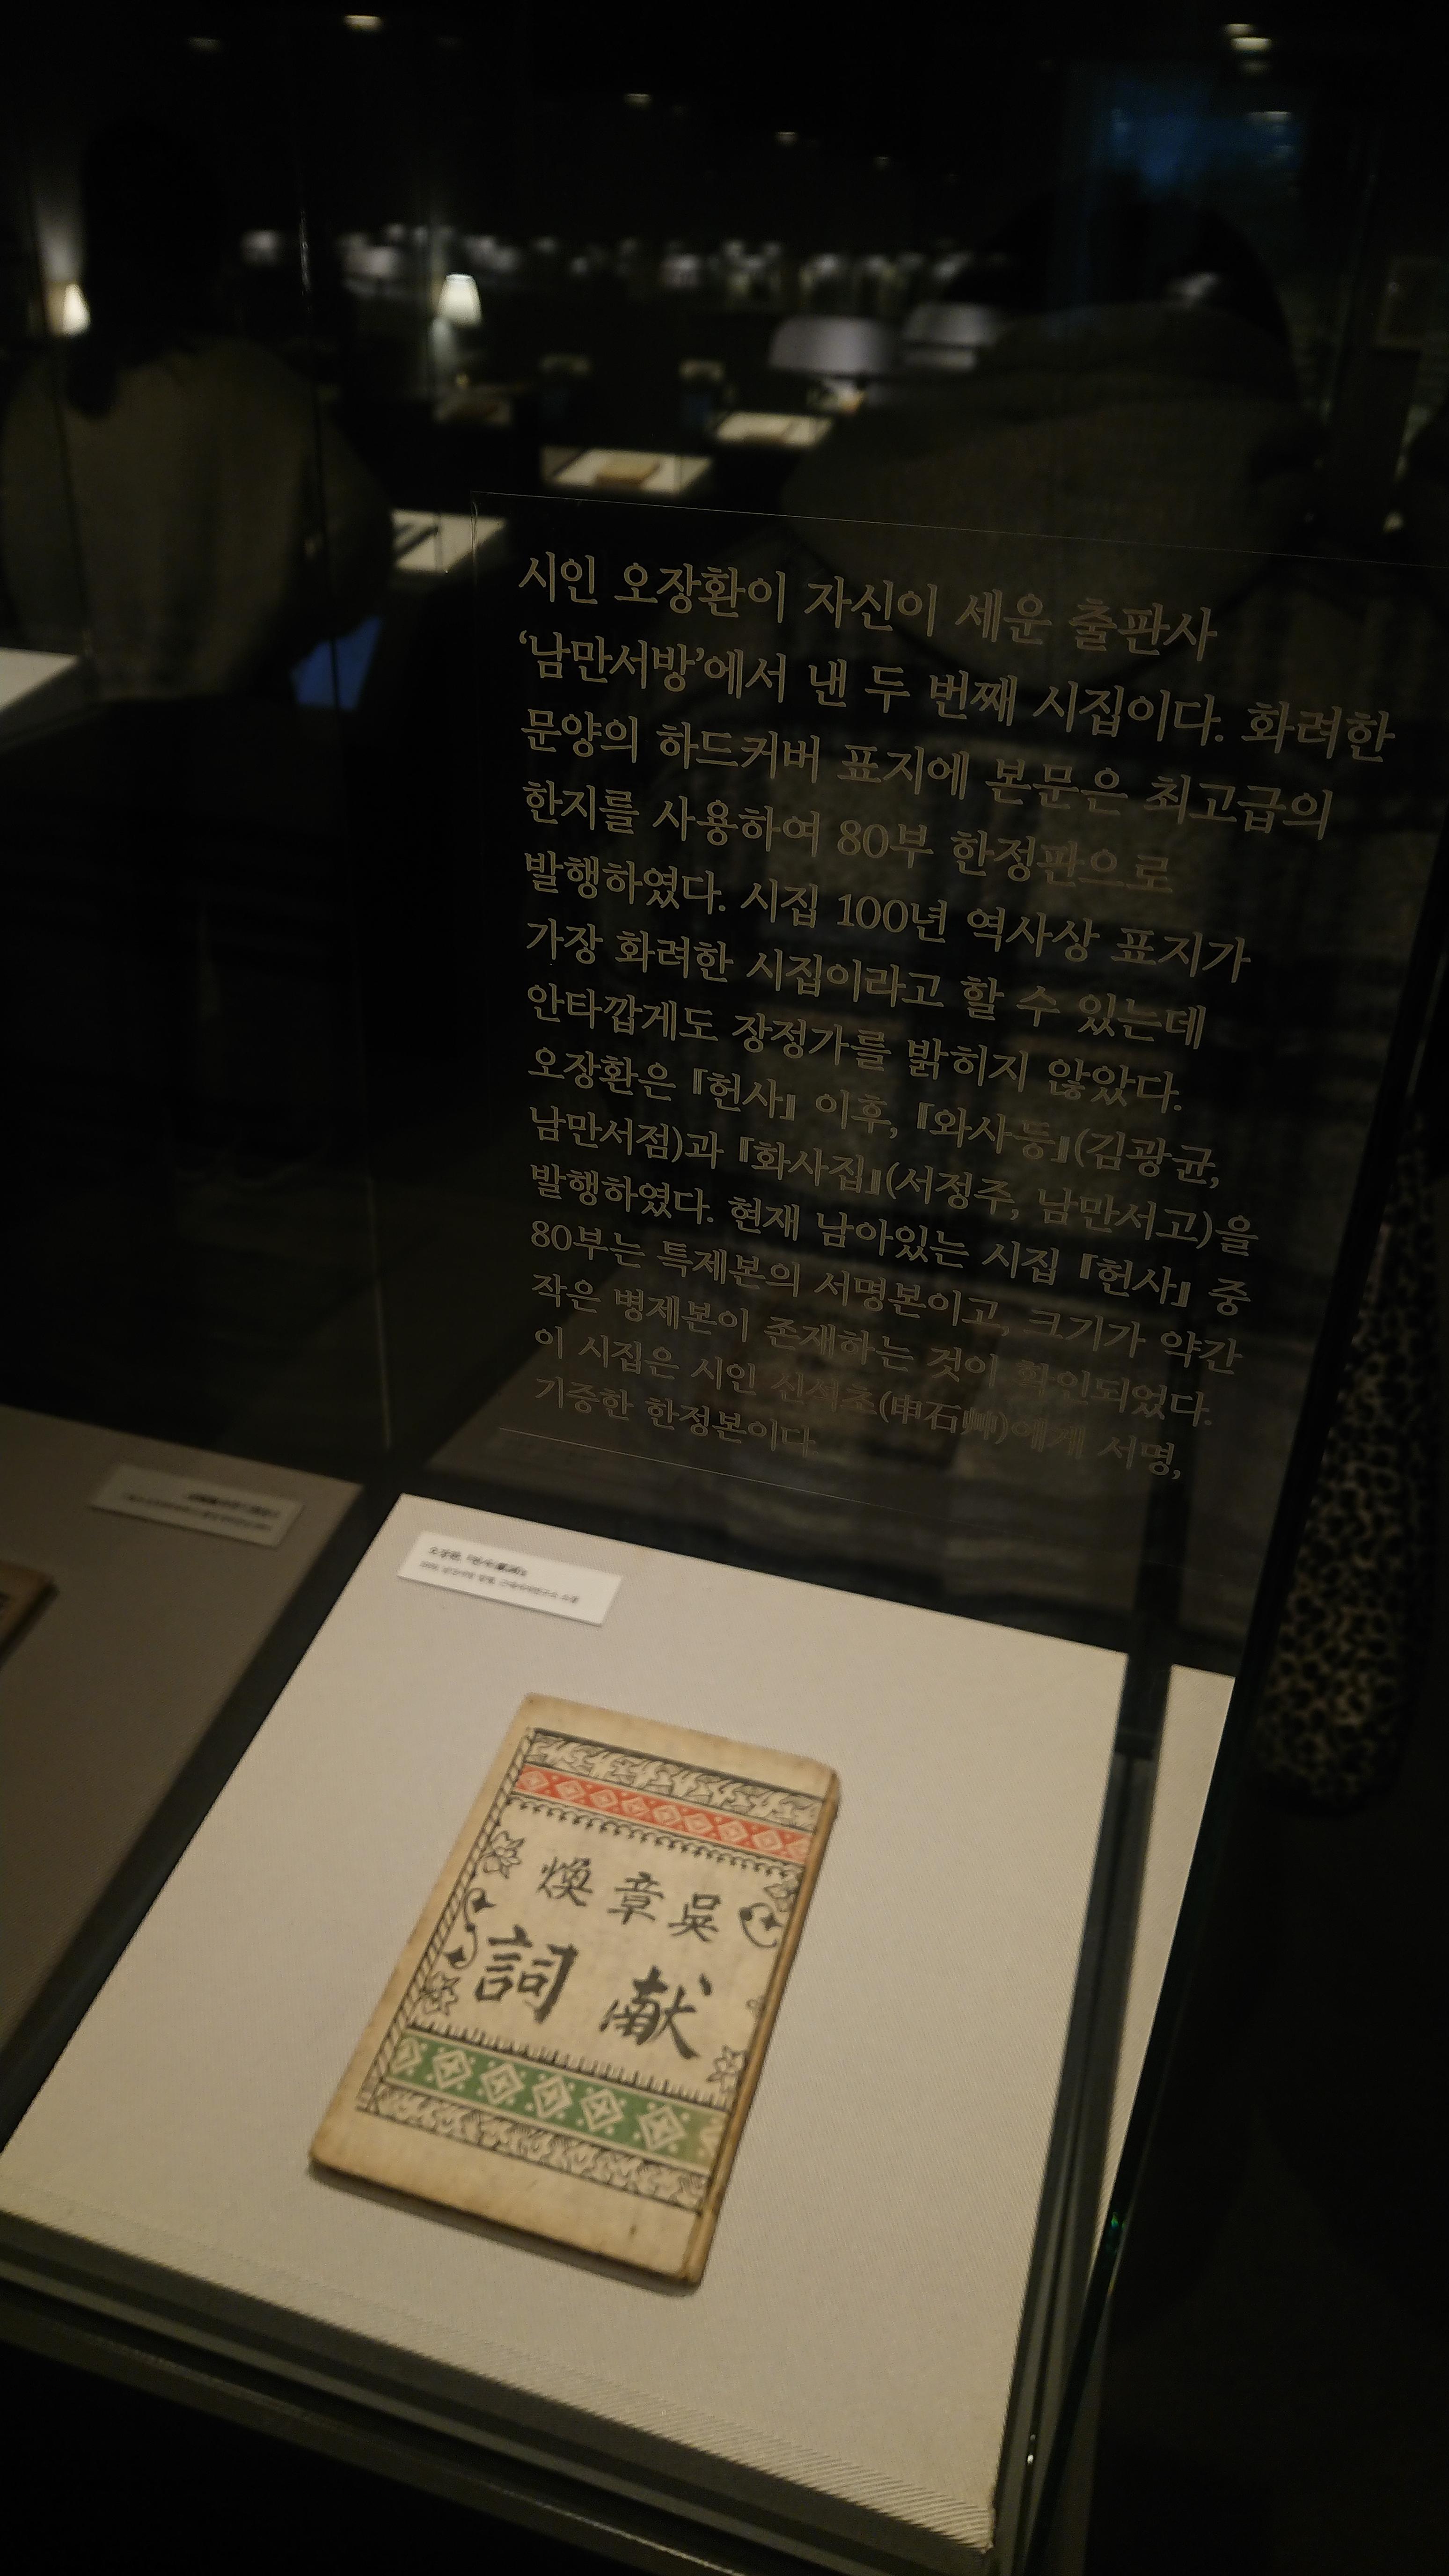 시인 오장환이 자신이 세운 출판사
‘남만서방’에서 낸 두 번째 시집이다. 화려한
문양의 하드커버 표지에 본문은 최고급의
한지를 사용하여 80부 한정판으로
발행하였다. 시집 100년 역사상 표지가
가장 화려한 시집이라고 할 수 있는데
안타깝게도 장정가를 밝히지 않았다.
오장환은 『헌사』 이후, 『와사등』(김광균,
남만서점)과 『화사집』(서정주, 남만서고)을
발행하였다. 현재 남아있는 시집 『헌사』 중
80부는 특제본의 서명본이고, 크기가 약간
작은 병제본이 존재하는 것이 확인되었다.
이 시집은 시인 신석초(申石艸)에게 서명,
기증한 한정본이다.
오장환,
煥 章 吳
詞 献